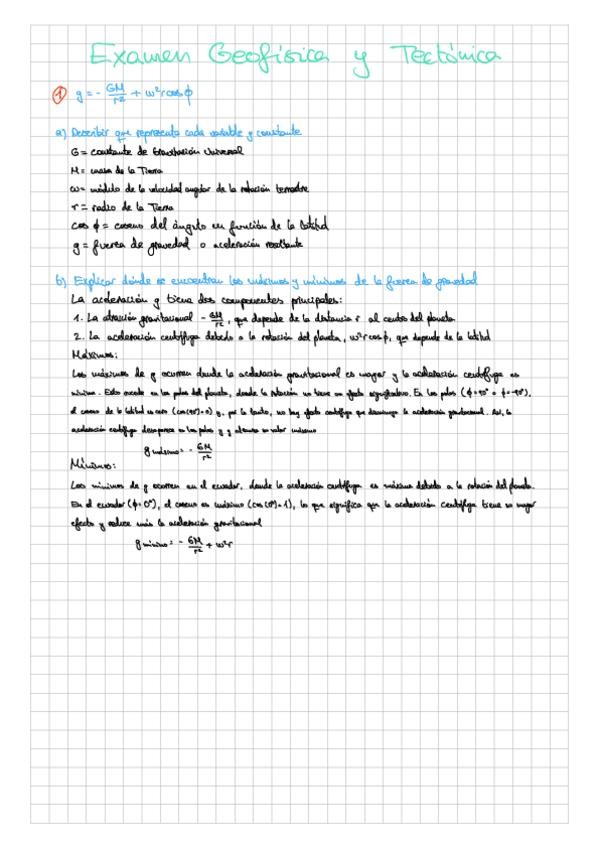 Examen Geofísica y Tectónica
① g = - GM/r² + ω²rcosϕ
a) Describir que representa cada variable y constante
G = constante de Gravitación Universal
M = masa de la Tierra
ω = módulo de la velocidad angular de la rotación terrestre
r = radio de la Tierra
cos ϕ = coseno del ángulo en función de la latitud
g = fuerza de gravedad o aceleración resultante
b) Explicar dónde se encuentran los máximos y mínimos de la fuerza de gravedad
La aceleración g tiene dos componentes principales:
1. La atracción gravitacional - GM/r², que depende de la distancia r al centro del planeta
2. La aceleración centrífuga debido a la rotación del planeta, ω²rcosϕ, que depende de la latitud
Máximos:
Los máximos de g ocurren donde la aceleración gravitacional es mayor y la aceleración centrífuga es
mínima. Esto sucede en los polos del planeta, donde la rotación no tiene un efecto significativo. En los polos (ϕ=90° o ϕ=-90°),
el coseno de la latitud es cero (cos(90°)=0) y, por lo tanto, no hay efecto centrífugo que disminuya la aceleración gravitacional. Así, la
aceleración centrífuga desaparece en los polos y g alcanza su valor máximo
g máximo = - GM/r²
Mínimos:
Los mínimos de g ocurren en el ecuador, donde la aceleración centrífuga es máxima debido a la rotación del planeta.
En el ecuador (ϕ=0°), el coseno es máximo (cos(0°)=1), lo que significa que la aceleración centrífuga tiene su mayor
efecto y reduce más la aceleración gravitacional
g mínimo = - GM/r² + ω²r